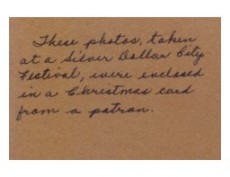 These photos, taken
at a Silver Dollar City
Festival, were enclosed
in a Christmas card
from a patron.